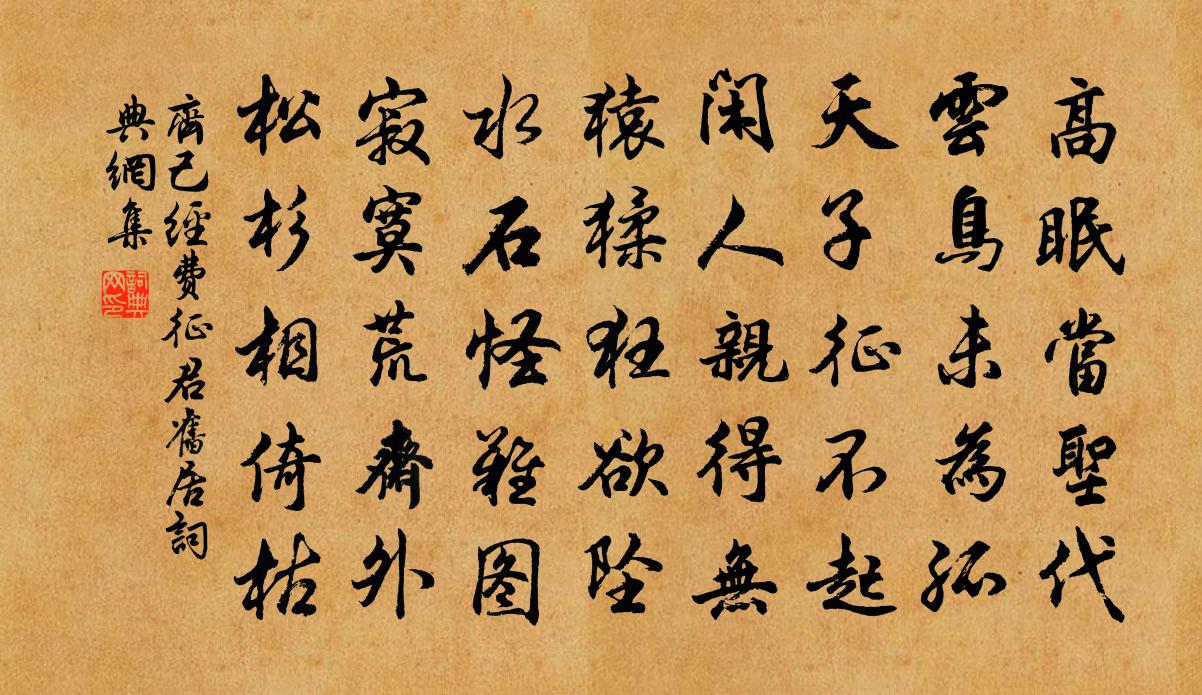 高眠當聖代
雲鳥未為孤
天子征不起
閑人親得無
猿猱狂欲坠
水石怪難图
寂寞荒齋外
松杉相倚枯
齊己經費征君舊居詞
典網集
詞典
网印